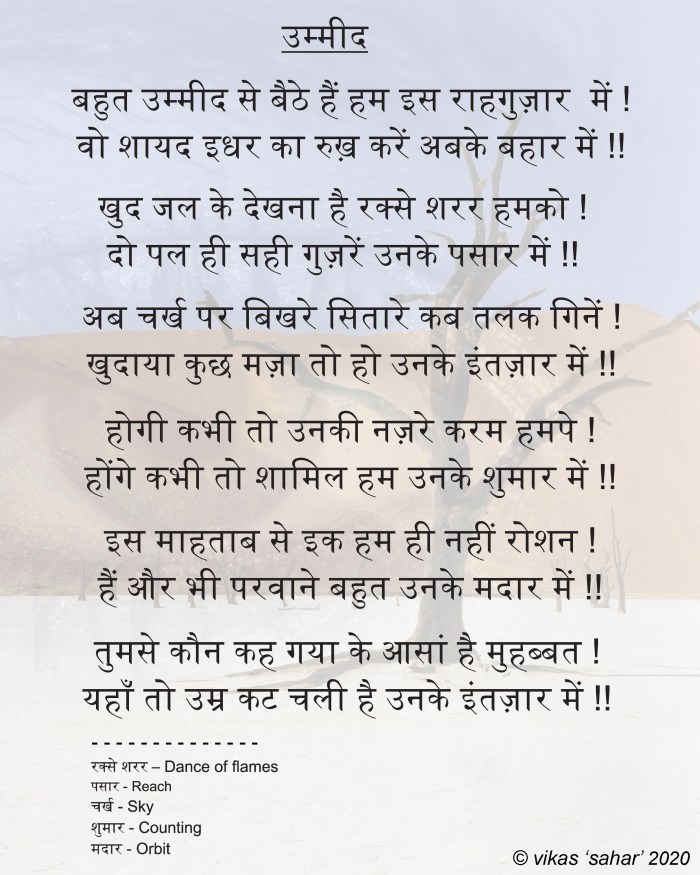 उम्मीद
बहुत उम्मीद से बैठे हैं हम इस राहगुज़ार में !
वो शायद इधर का रुख़ करें अबके बहार में !!
खुद जल के देखना है रक्से शरर हमको !
दो पल ही सही गुज़रें उनके पसार में !!
अब चर्ख पर बिखरे सितारे कब तलक गिनें !
खुदाया कुछ मज़ा तो हो उनके इंतज़ार में !!
होगी कभी तो उनकी नज़रे करम हमपे !
होंगे कभी तो शामिल हम उनके शुमार में !!
इस माहताब से इक हम ही नहीं रोशन !
हैं और भी परवाने बहुत उनके मदार में !!
तुमसे कौन कह गया के आसां है मुहब्बत !
यहाँ तो उम्र कट चली है उनके इंतज़ार में !!
- - - - - - - - - - - - - -
रक्से शरर – Dance of flames
पसार - Reach
चर्ख - Sky
शुमार - Counting
मदार - Orbit
© vikas ‘sahar’ 2020